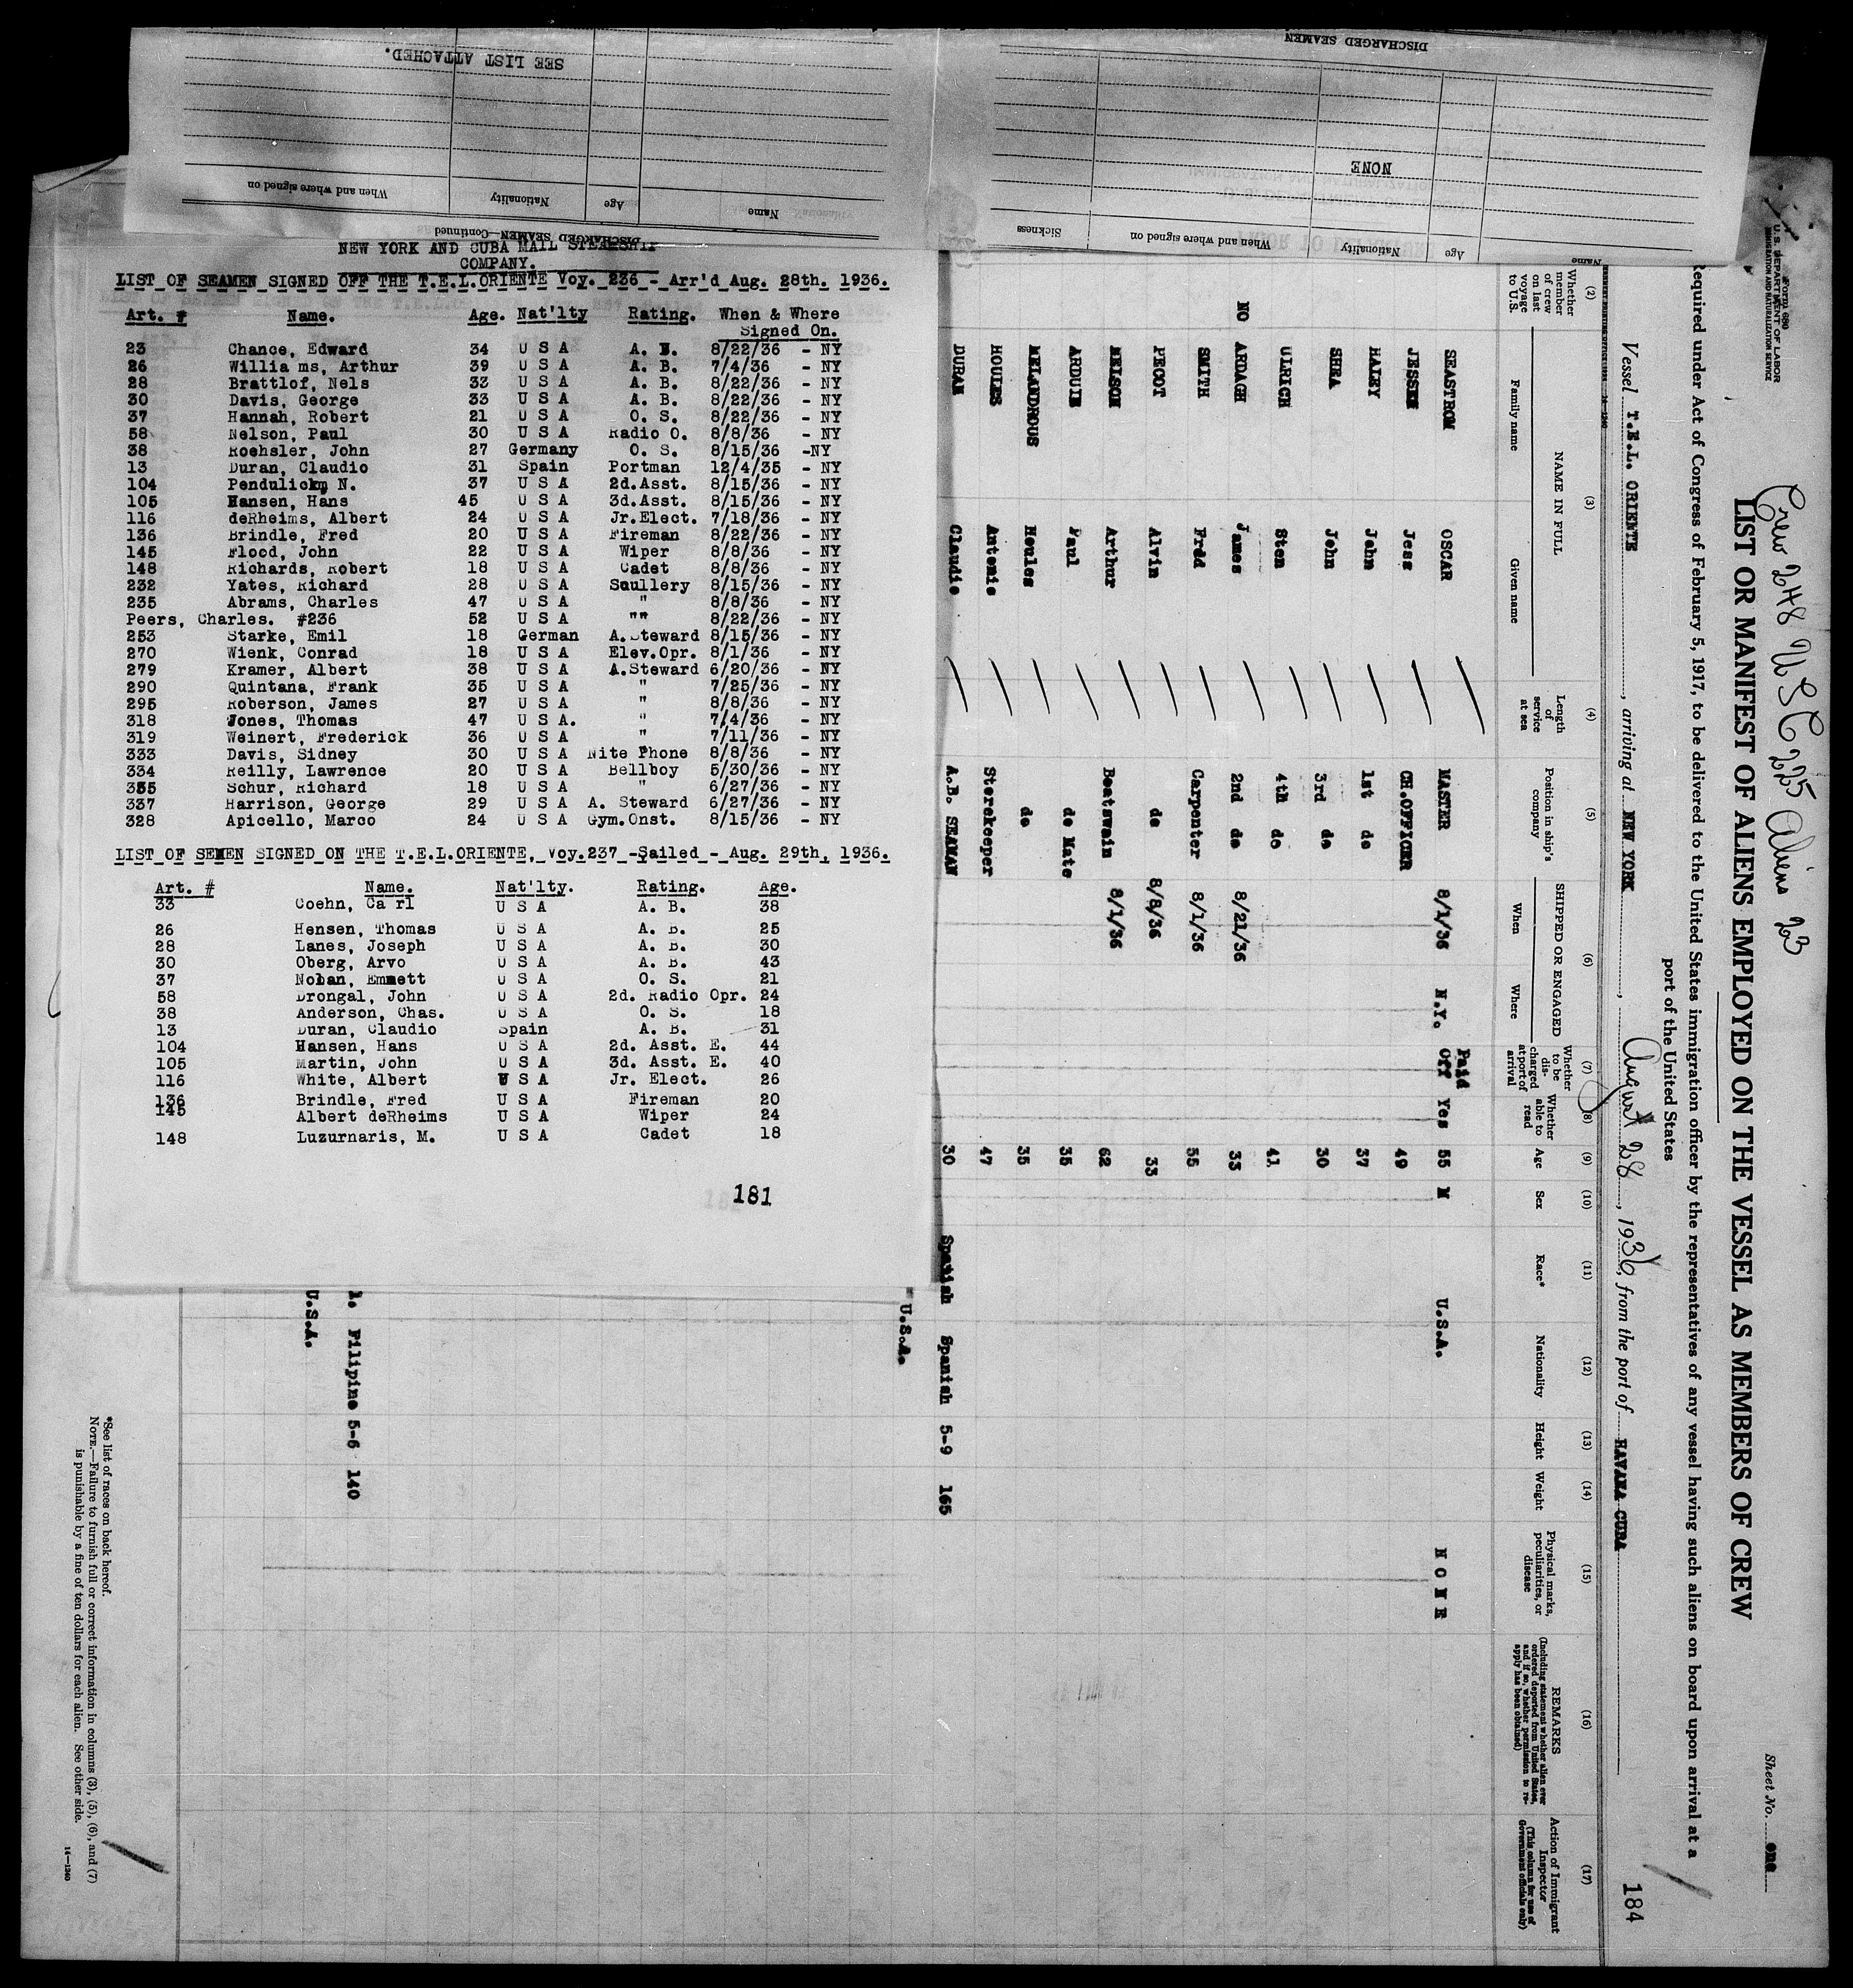 SEE LIST ATTACHED.
When and where signed on Nationality Age Name
DISCHARGED SEAMEN—Continued
DISCHARGED SEAMEN
NONE
Sickness When and where signed on Nationality Age Name
NEW YORK AND CUBA MAIL STEAMSHIP
COMPANY.
LIST OF SEAMEN SIGNED OFF THE T.E.L.ORIENTE Voy. 236 - Arr'd Aug. 28th, 1936.
Art. # Name. Age. Nat'lty Rating. When & Where
Signed On.
23 Chance, Edward 34 U S A A. B. 8/22/36 - NY
26 Willia ms, Arthur 39 U S A A. B. 7/4/36 - NY
28 Brattlof, Nels 33 U S A A. B. 8/22/36 - NY
30 Davis, George 33 U S A A. B. 8/22/36 - NY
37 Hannah, Robert 21 U S A O. S. 8/22/36 - NY
58 Nelson, Paul 30 U S A Radio O. 8/8/36 - NY
38 Roehsler, John 27 Germany O. S. 8/15/36 -NY
13 Duran, Claudio 31 Spain Portman 12/4/35 - NY
104 Pendulick, N. 37 U S A 2d.Asst. 8/15/36 - NY
105 Hansen, Hans 45 U S A 3d.Asst. 8/15/36 - NY
116 deRheims, Albert 24 U S A Jr.Elect. 7/18/36 - NY
136 Brindle, Fred 20 U S A Fireman 8/22/36 - NY
145 Flood, John 22 U S A Wiper 8/8/36 - NY
148 Richards, Robert 18 U S A Cadet 8/8/36 - NY
232 Yates, Richard 28 U S A Scullery 8/15/36 - NY
235 Abrams, Charles 47 U S A " 8/8/36 - NY
Peers, Charles. #236 52 U S A "" 8/22/36 - NY
253 Starke, Emil 18 German A.Steward 8/15/36 - NY
270 Wienk, Conrad 18 U S A Elev.Opr. 8/1/36 - NY
279 Kramer, Albert 38 U S A A.Steward 6/20/36 - NY
290 Quintana, Frank 35 U S A " 7/25/36 - NY
295 Roberson, James 27 U S A " 8/8/36 - NY
318 Jones, Thomas 47 U S A. " 7/4/36 - NY
319 Weinert, Frederick 36 U S A " 7/11/36 - NY
333 Davis, Sidney 30 U S A Nite Phone 8/8/36 - NY
334 Reilly, Lawrence 20 U S A Bellboy 5/30/36 - NY
335 Schur, Richard 18 U S A " 6/27/36 - NY
337 Harrison, George 29 U S A A. Steward 6/27/36 - NY
328 Apicello, Marco 24 U S A Gym.Onst. 8/15/36 - NY
LIST OF SEMEN SIGNED ON THE T.E.L.ORIENTE, Voy.237 -Sailed - Aug. 29th, 1936.
Art. # Name. Nat'lty. Rating. Age.
33 Coehn, Ca rl U S A A. B. 38
26 Hensen, Thomas U S A A. B. 25
28 Lanes, Joseph U S A A. B. 30
30 Oberg, Arvo U S A A. B. 43
37 Nolan, Emmett U S A O. S. 21
58 Drongal, John U S A 2d. Radio Opr. 24
38 Anderson, Chas. U S A O. S. 18
13 Duran, Claudio Spain A. B. 31
104 Hansen, Hans U S A 2d. Asst. E. 44
105 Martin, John U S A 3d. Asst. E. 40
116 White, Albert U S A Jr. Elect. 26
136 Brindle, Fred U S A Fireman 20
145 Albert deRheims U S A Wiper 24
148 Luzurnaris, M. U S A Cadet 18
181
Form 680
U.S. DEPARTMENT OF LABOR
IMMIGRATION AND NATURALIZATION SERVICE
Sheet No. one
Crew 248 USC 225 Aliens 23
LIST OR MANIFEST OF ALIENS EMPLOYED ON THE VESSEL AS MEMBERS OF CREW
Required under Act of Congress of February 5, 1917, to be delivered to the United States immigration officer by the representatives of any vessel having such aliens on board upon arrival at a
port of the United States
Vessel T.E.L. ORIENTE, arriving at NEW YORK, August 28, 1936, from the port of HAVANA CUBA
184
(2) (3) (4) (5) (6) (7) (8) (9) (10) (11) (12) (13) (14) (15) (16) (17)
Whether member of crew on last voyage to U.S.
NAME IN FULL
Family name Given name
Length of service at sea
Position in ship's company
SHIPPED OR ENGAGED
When Where
Whether to be discharged at port of arrival
Whether able to read
Age
Sex
Race*
Nationality
Height
Weight
Physical marks, peculiarities, or disease
REMARKS
(Including statement whether alien ever ordered deported from United States, and if so, whether permission to reapply has been obtained)
Action of Immigrant Inspector
(This column for use of Government officials only)
SEASTROM OSCAR MASTER 8/1/36 N.Y. Paid Off Yes 55 M U.S.A. N O N E
JESSEN Jess CH.OFFICER 49
HALEY John 1st do 37
SHEA John 3rd do 30
ULRICH Sten 4th do 41
NO ARDAGH James 2nd do 8/21/36 33
SMITH Fred Carpenter 8/1/36 55
PECOT Alvin do 8/8/36 33
NELSON Arthur Boatswain 8/1/36 62
ARDUIN Paul do Mate 35
MELANDROUS Houles do 35
HOULES Antonio Storekeeper 47
DURAN Claudio A.B. SEAMAN 30 Spanish Spanish 5-9 165
U.S.A.
1. Filipino 5-6 140
U.S.A.
*See list of races on back hereof.
NOTE.—Failure to furnish full or correct information in columns (3), (5), (6), and (7)
is punishable by a fine of ten dollars for each alien. See other side.
14—1240